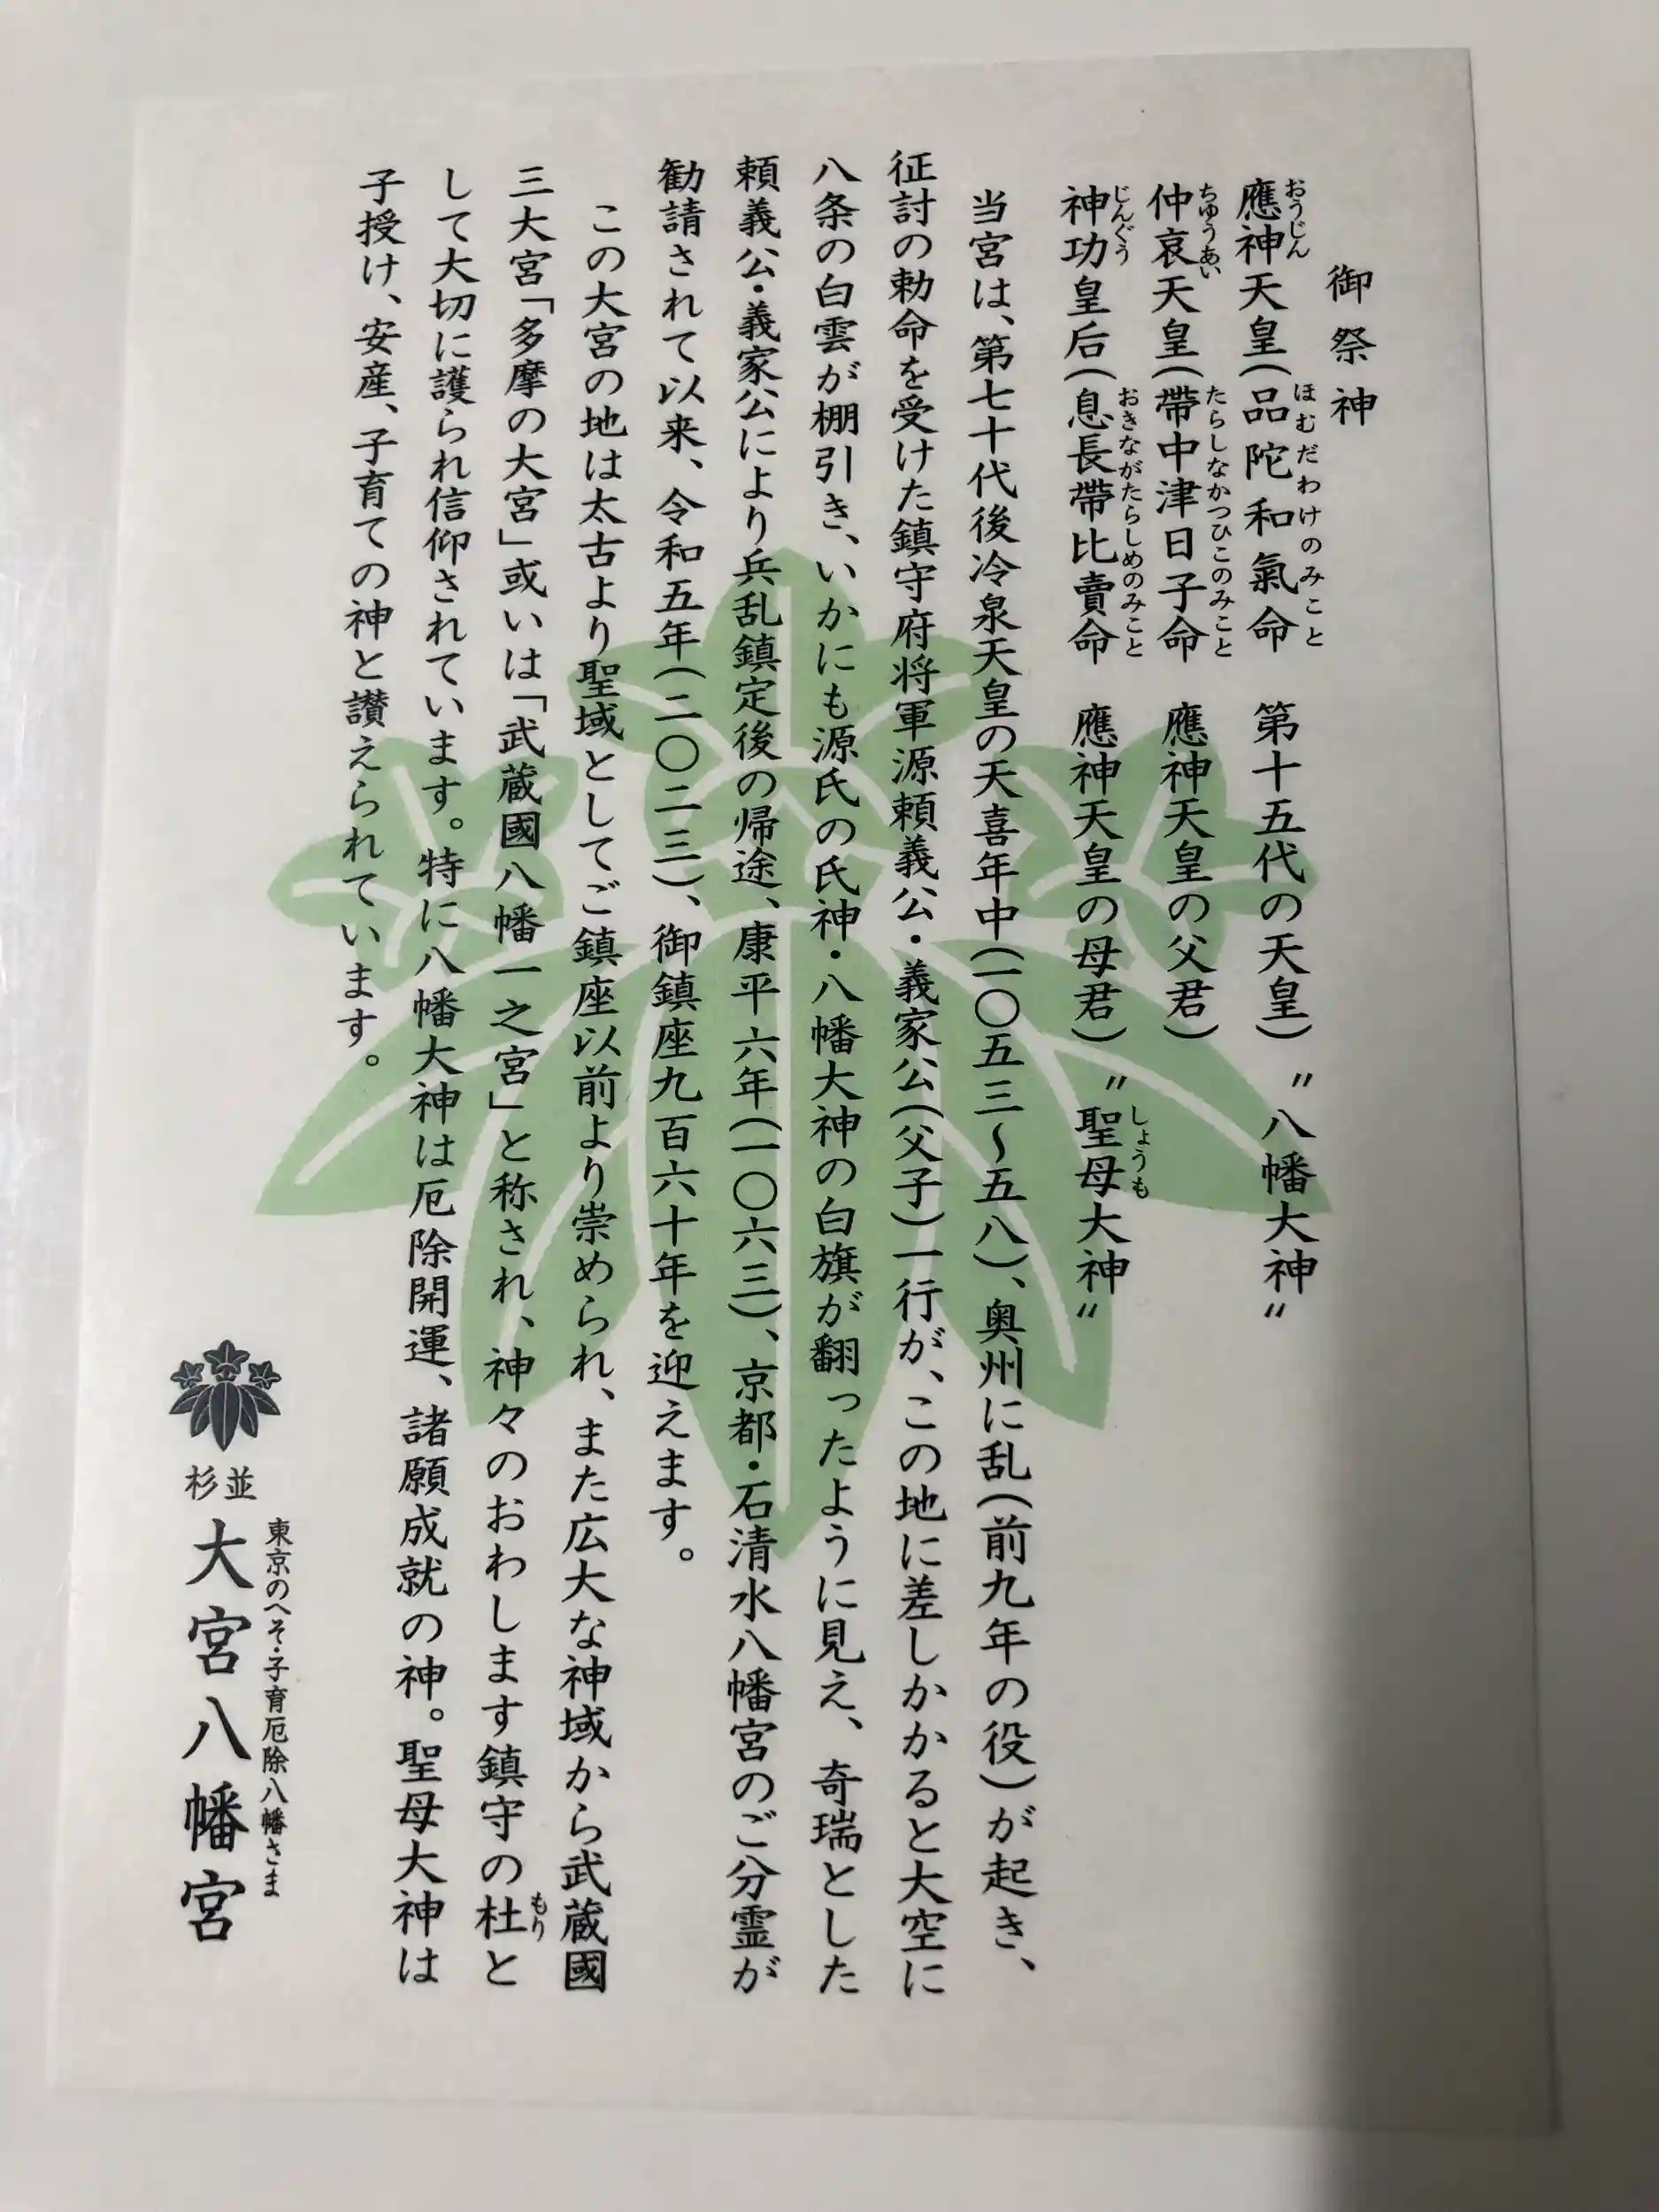 御祭神
應神天皇(品陀和氣命 第十五代の天皇)〝八幡大神〟
おうじん ほむだわけのみこと
仲哀天皇(帶中津日子命 應神天皇の父君)
ちゅうあい たらしなかつひこのみこと
神功皇后(息長帶比賣命 應神天皇の母君)〝聖母大神〟
じんぐう おきながたらしめのみこと しょうも
当宮は、第七十代後冷泉天皇の天喜年中(一〇五三〜五八)、奥州に乱(前九年の役)が起き、
征討の勅命を受けた鎮守府将軍源頼義公・義家公(父子)一行が、この地に差しかかると大空に
八条の白雲が棚引き、いかにも源氏の氏神・八幡大神の白旗が翻ったように見え、奇瑞とした
頼義公・義家公により兵乱鎮定後の帰途、康平六年(一〇六三)、京都・石清水八幡宮のご分霊が
勧請されて以来、令和五年(二〇二三)、御鎮座九百六十年を迎えます。
この大宮の地は太古より聖域としてご鎮座以前より崇められ、また広大な神域から武蔵國
三大宮「多摩の大宮」或いは「武蔵國八幡一之宮」と称され、神々のおわします鎮守の杜と
もり
して大切に護られ信仰されています。特に八幡大神は厄除開運、諸願成就の神。聖母大神は
子授け、安産、子育ての神と讃えられています。
東京のへそ・子育厄除八幡さま
杉並
大宮八幡宮